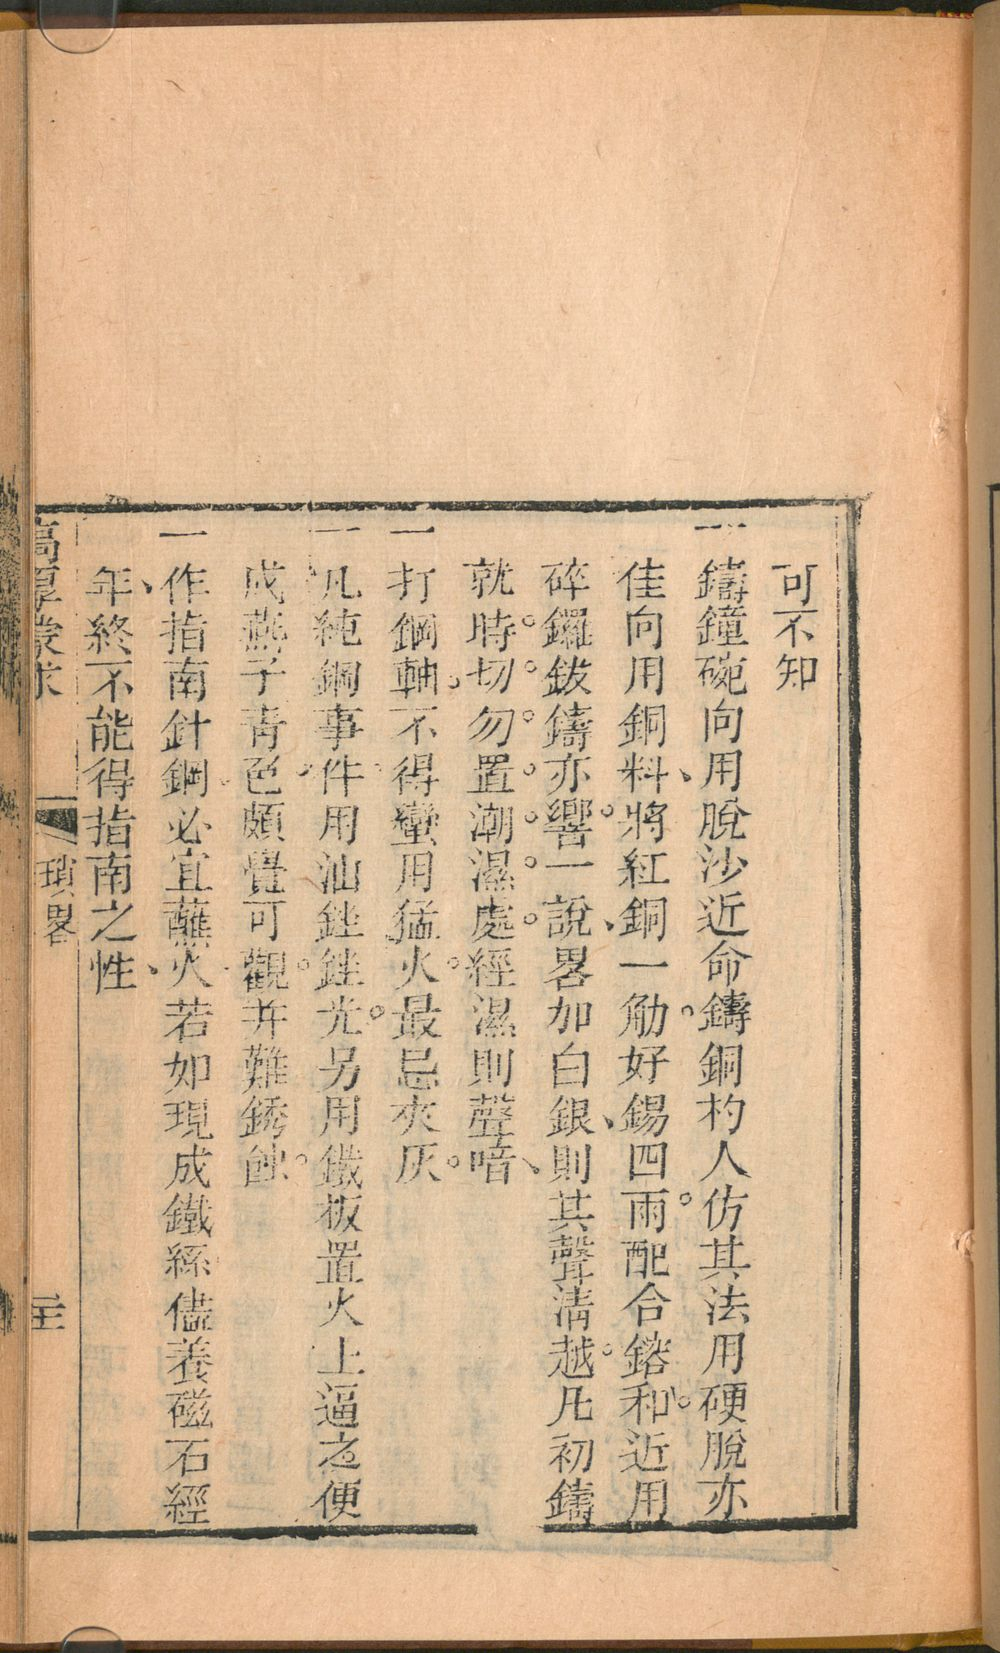 可不知
一鑄鐘碗向用脫沙近命鑄銅杓人仿其法用硬脫亦
佳向用銅料、將紅銅一觔。好錫四兩。配合鎔和、近用
碎鑼鈸鑄亦響。一說、畧加白銀、則其聲清越。凡初鑄
就時。切。勿。置。潮。濕。處。經濕則聲喑、
一打鋼軸、不得蠻用猛火。最忌夾灰。
一凡純鋼事件用油銼銼光。另用鐵板置火上逼之便
成燕子青色、頗覺可觀。并難銹蝕。
一作指南針鋼必宜蘸火若如現成鐵絲儘養磁石經
年、終不能得指南之性、
高厚蒙求
瑣畧
二十